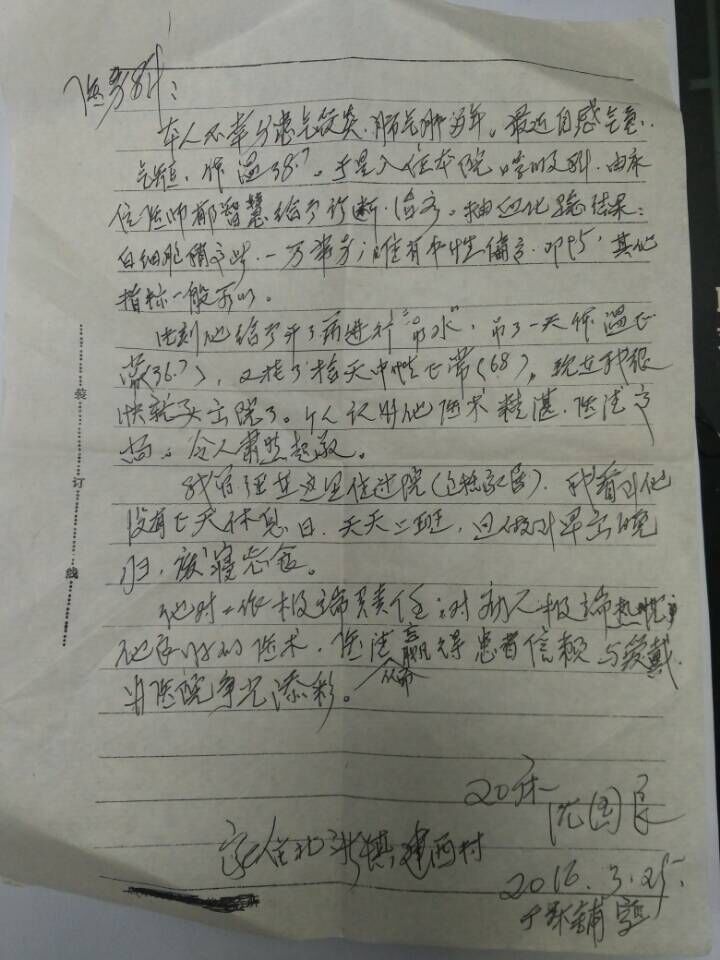 医务科：
本人不幸身患气管炎、肺气肿多年。最近自感气急、
气短，体温38.7。于是入住本院呼吸科，由床
位医师郁智慧给予诊断、治疗。抽血化验结果：
白细胞稍高些，一万单方，唯有中性偏高，即95，其他
指标一般可以。
他给予开了药进行“吊水”，吊了一天体温正
常(36.7)，又挂了 天中性正常(68)，现在我很
快就要出院了。个人认为他医术精湛，医德高
尚，令人肃然起敬。
我曾经在这里住过院，我看到他
没有七天休息日，天天上班，已做到早出晚
归，废寝忘食。
他对工作极端负责任，对病人极端热忱，
他良好的医术，医德赢得患者信赖与爱戴，
从而
为医院争光添彩。
20床
沈国良
家住北新镇建西村
2016.3.25.
于 铺写
装订线